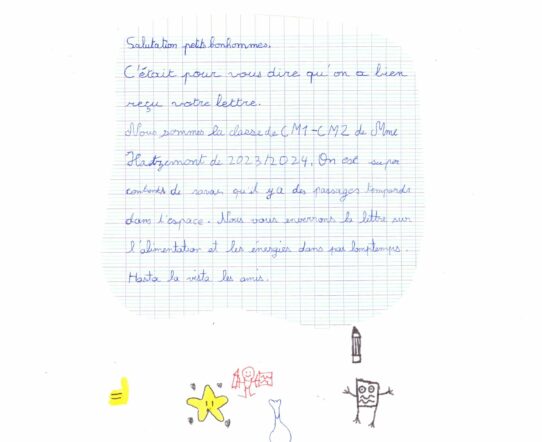 Salutation petits bonhommes.
C'était pour vous dire qu'on a bien
reçu votre lettre.
Nous sommes la classe de CM1-CM2 de Mme
de 2023/2024. On est super
contents de savoir qu'il y a des passages temporels
dans l'espace. Nous vous enverrons la lettre sur
l'alimentation et les énergies dans pas longtemps.
Hasta la vista les amis.